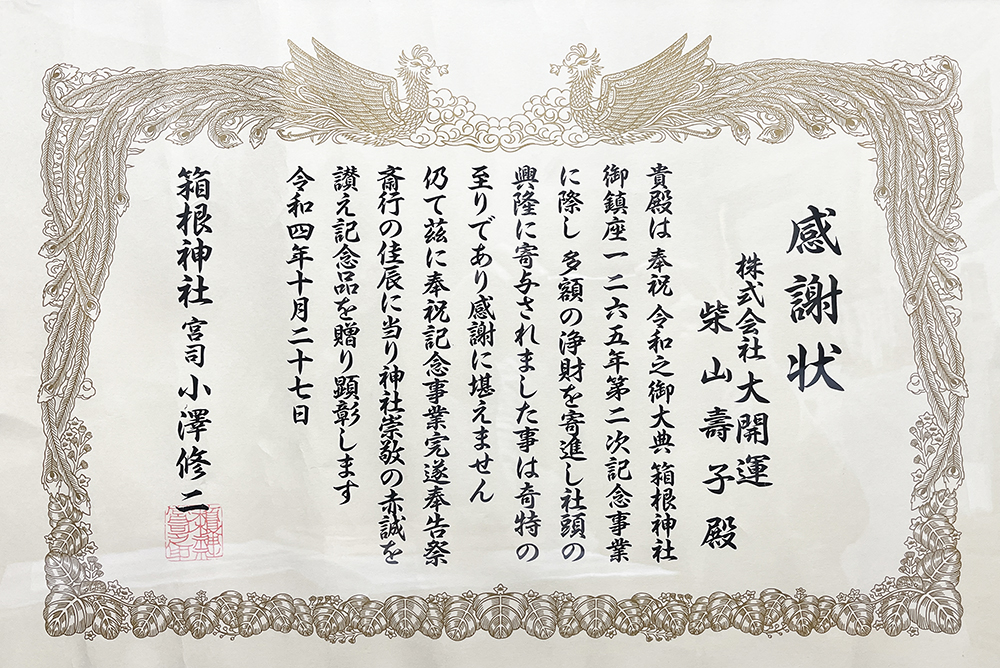 感謝状
株式会社大開運
柴山壽子殿
貴殿は 奉祝 令和之御大典 箱根神社
御鎮座一二六五年第二次記念事業
に際し 多額の浄財を寄進し社頭の
興隆に寄与されました事は奇特の
至りであり感謝に堪えません
仍て茲に奉祝記念事業完遂奉告祭
斎行の佳辰に当り神社崇敬の赤誠を
讃え記念品を贈り顕彰します
令和四年十月二十七日
箱根神社 宮司 小澤修二